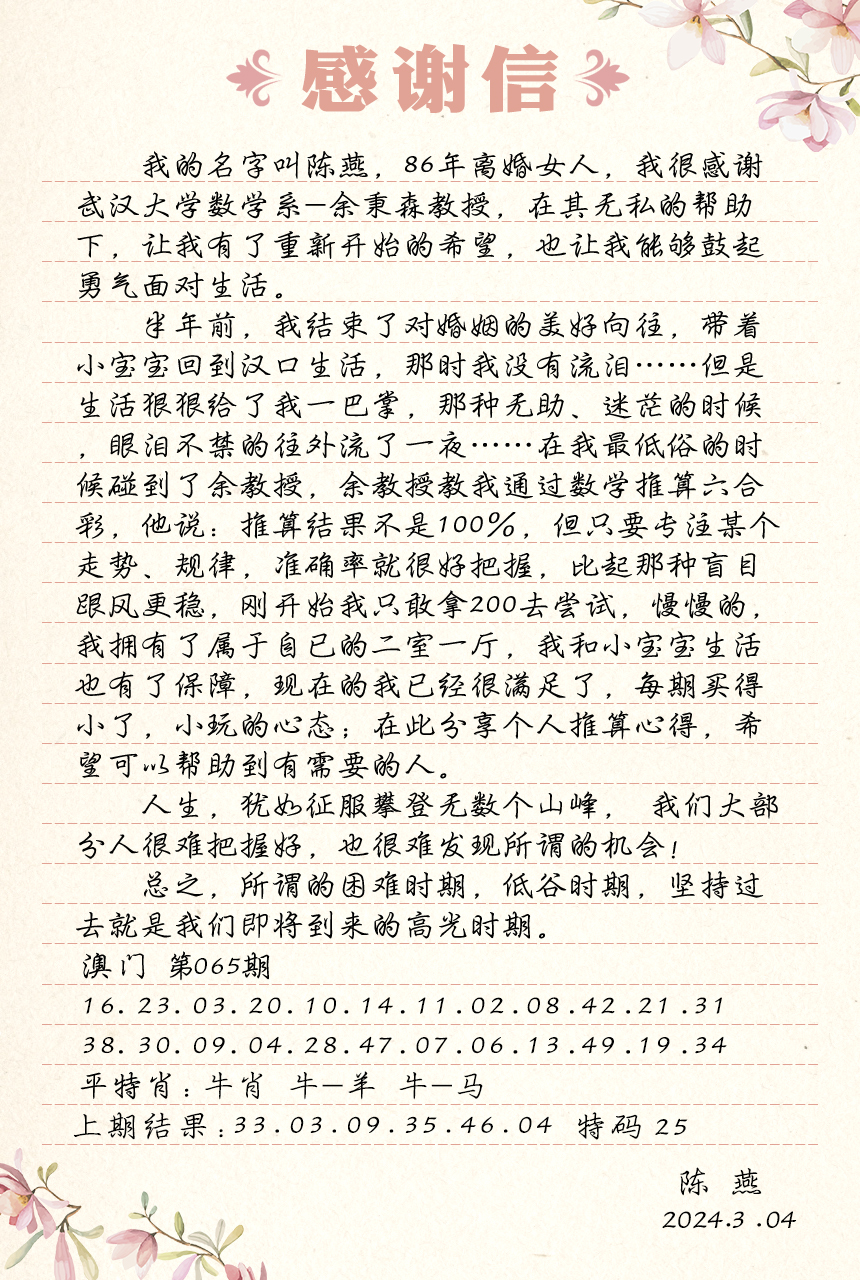 感谢信
我的名字叫陈燕，86年离婚女人，我很感谢
武汉大学数学系—余秉森教授，在其无私的帮助
下，让我有了重新开始的希望，也让我能够鼓起
勇气面对生活。
半年前，我结束了对婚姻的美好向往，带着
小宝宝回到汉口生活，那时我没有流泪……但是
生活狠狠给了我一巴掌，那种无助、迷茫的时候
，眼泪不禁的往外流了一夜……在我最低俗的时
候碰到了余教授，余教授教我通过数学推算六合
彩，他说：推算结果不是100%，但只要专注某个
走势、规律，准确率就很好把握，比起那种盲目
跟风更稳，刚开始我只敢拿200去尝试，慢慢的，
我拥有了属于自已的二室一厅，我和小宝宝生活
也有了保障，现在的我已经很满足了，每期买得
小了，小玩的心态；在此分享个人推算心得，希
望可以帮助到有需要的人。
人生，犹如征服攀登无数个山峰， 我们大部
分人很难把握好，也很难发现所谓的机会！
总之，所谓的困难时期，低谷时期，坚持过
去就是我们即将到来的高光时期。
澳门 第065期
16.23.03.20.10.14.11.02.08.42.21.31
38.30.09.04.28.47.07.06.13.49.19.34
平特肖：牛肖 牛—羊 牛—马
上期结果：33.03.09.35.46.04 特码 25
陈 燕
2024.3.04